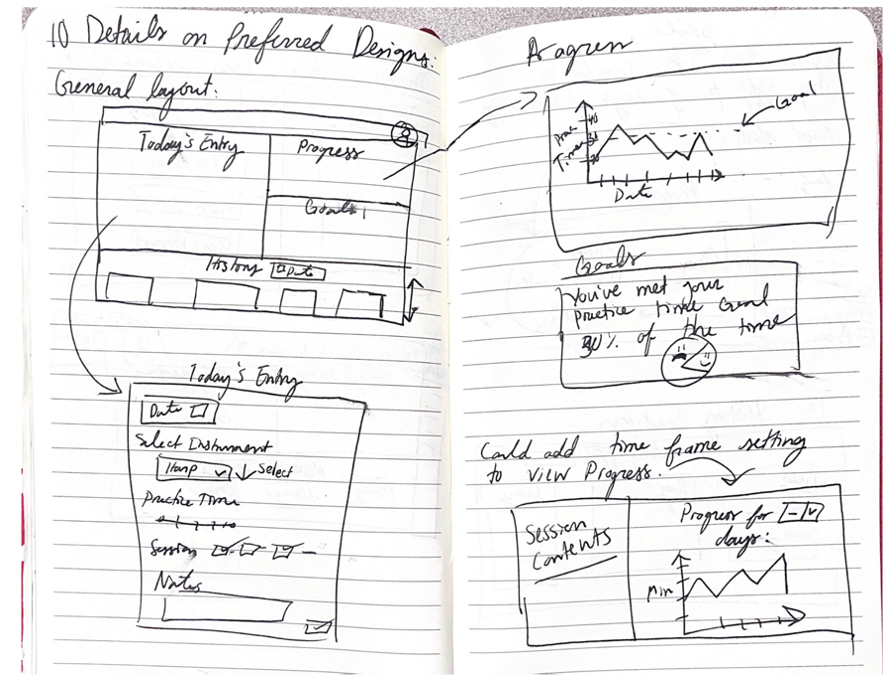 10 Details on Preferred Designs:
General layout:
Today's Entry
Progress
Goals
History
Date
Today's Entry
Date
Select Instrument
Harp
Select
Practice Time
Session
Notes
Progress
Goal
40
30
20
Prac
Time
Date
Goals
You've met your
practice time Goal
30% of the time
Could add time frame setting
to view Progress.
Session
Contents
Progress for
days:
Min